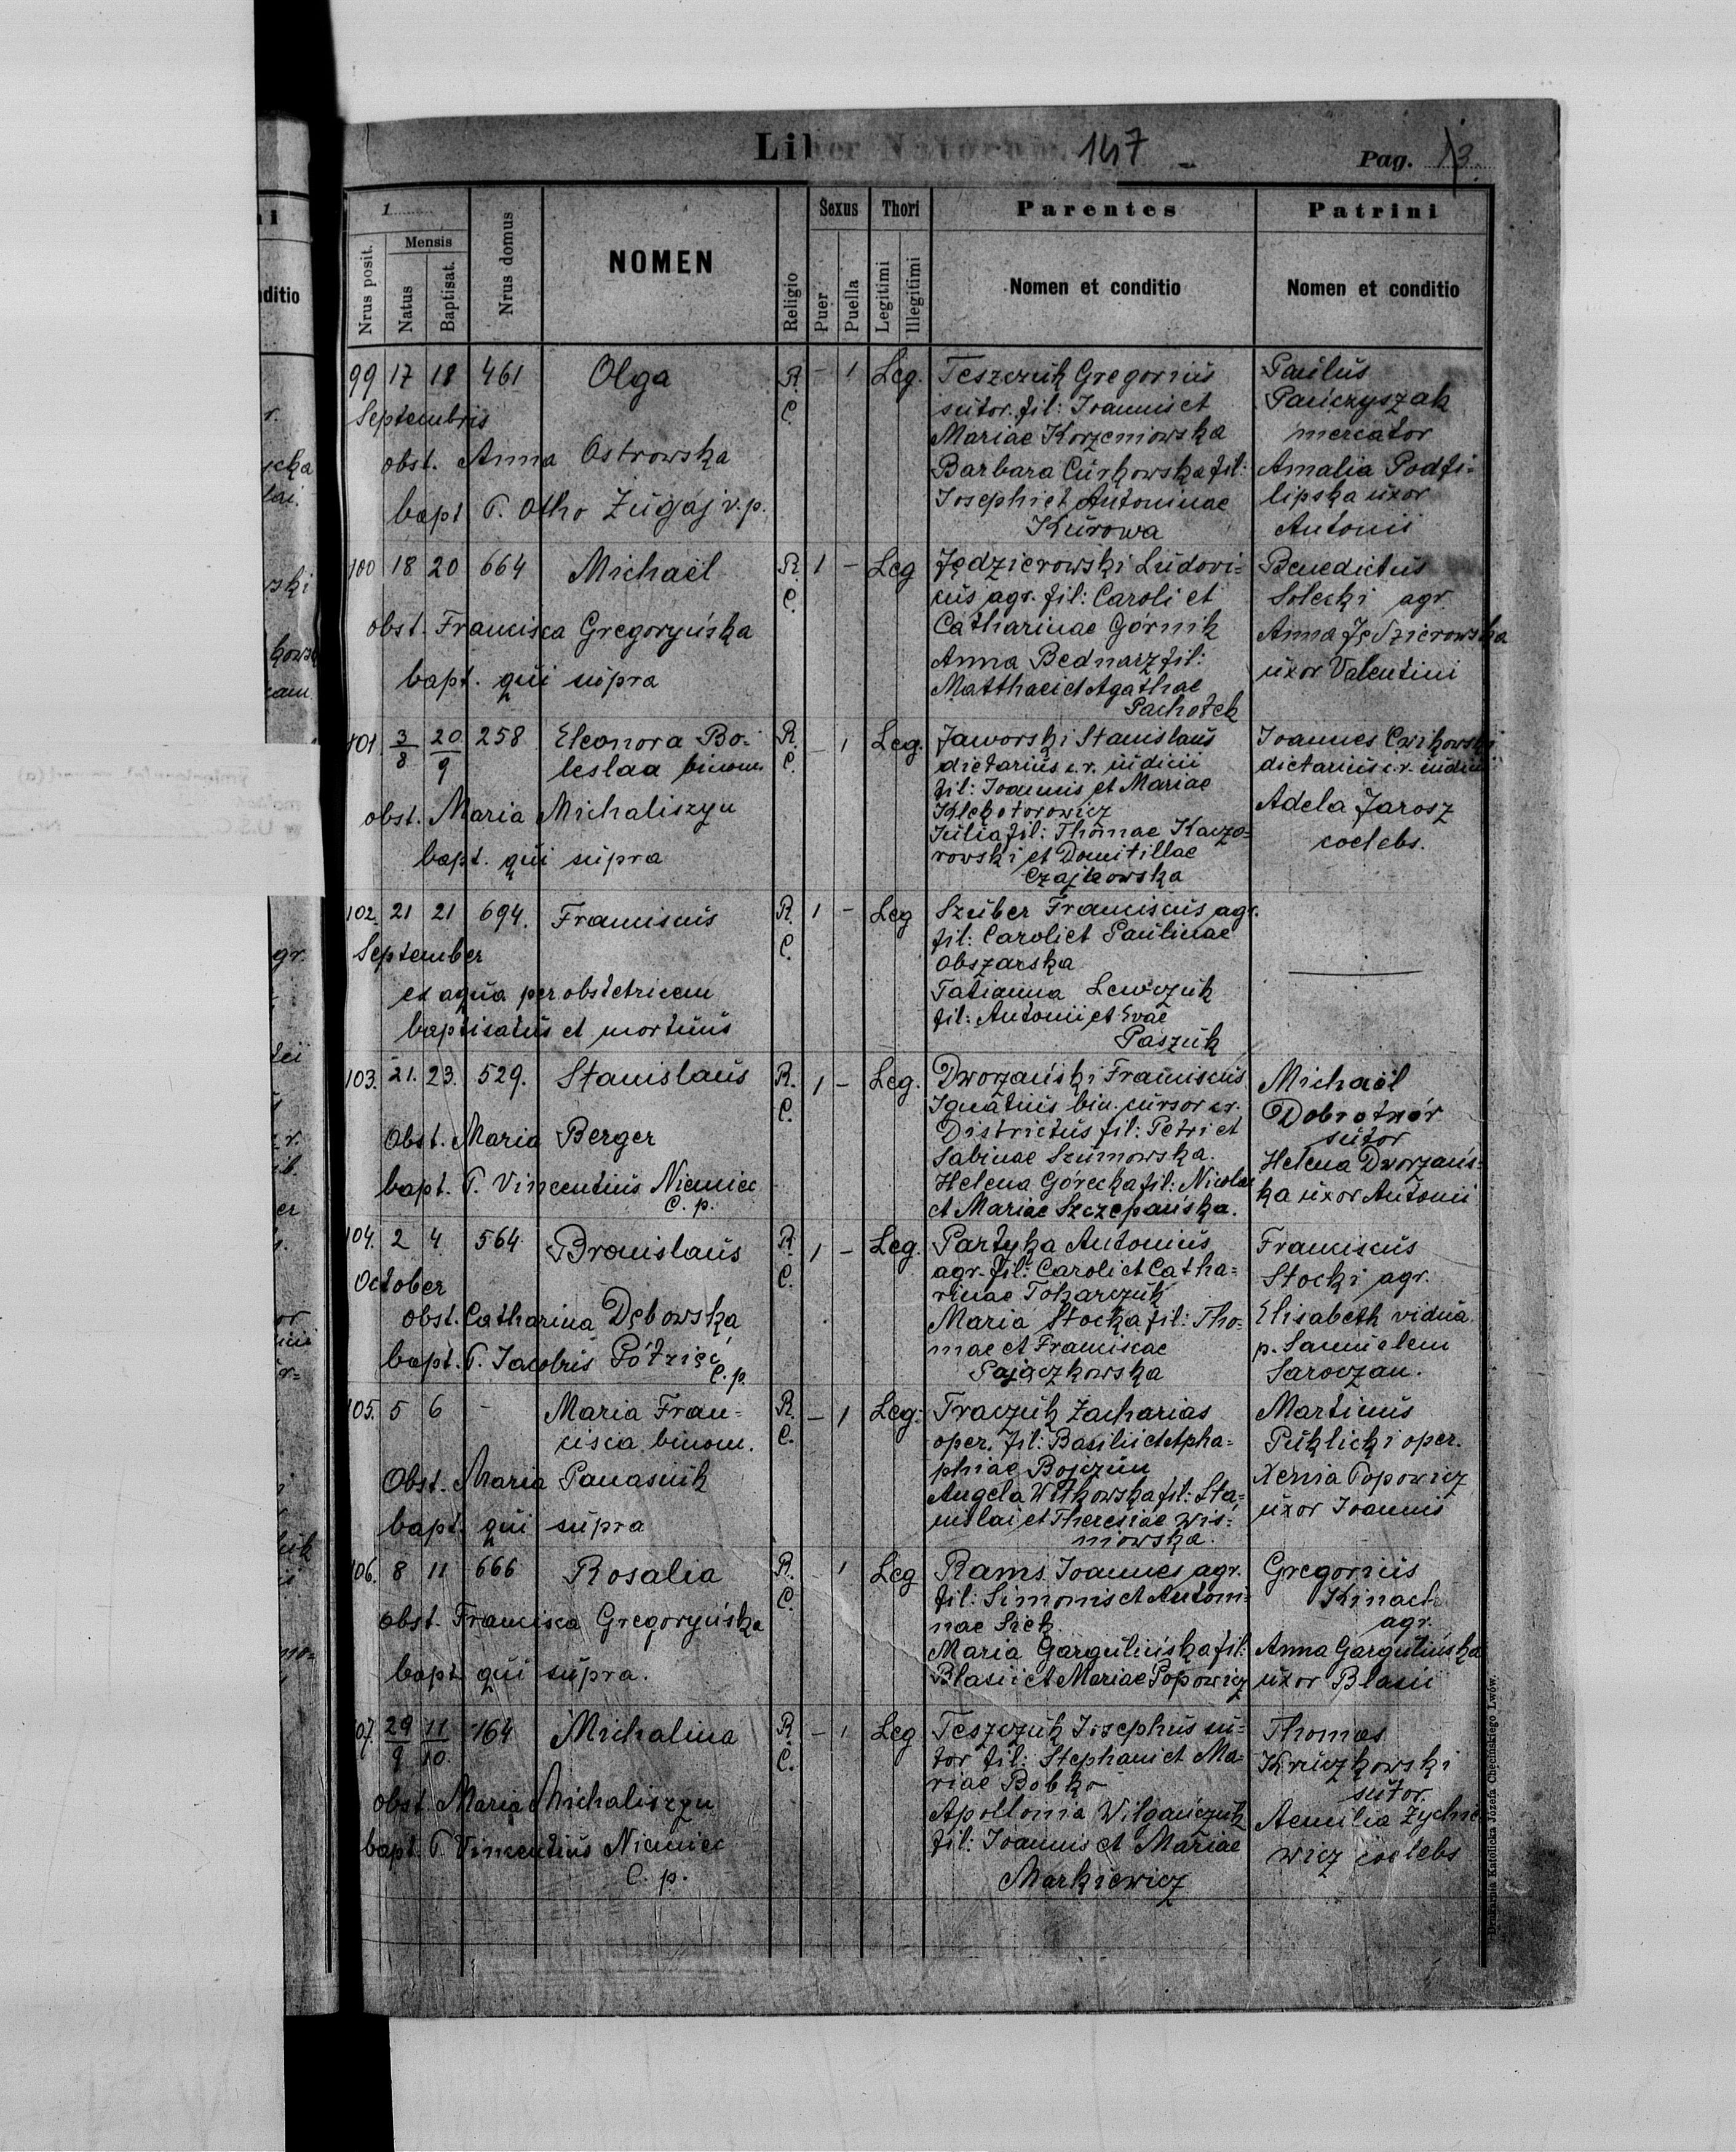 Liber Natorum. 147 -
Pag. 13
1
Nrus posit.
Mensis
Natus
Baptisat.
Nrus domus
NOMEN
Religio
Sexus
Puer
Puella
Thori
Legitimi
Illegitimi
Parentes
Nomen et conditio
Patrini
Nomen et conditio
99 17 18 461 Olga R. C. - 1 Leg.
Septembris
obst. Anna Ostrowska
bapt P. Otho Zugaj v. p.
Teszczuk Gregorius
sutor. fil: Joannis et
Mariae Korzeniowska
Barbara Curkowska fil:
Josephi et Antoninae
Kurowa
Paulus
Panczyszak
mercator
Amalia Podfi-
lipska uxor
Antonii
100 18 20 664 Michaël R. C. 1 - Leg
obst. Francisca Gregoryńska
bapt. qui supra
Jędzierowski Ludovi-
cus agr. fil: Caroli et
Catharinae Górnik
Anna Bednarz fil:
Matthaei et Agathae
Pachołek
Benedictus
Solecki agr.
Anna Jędzierowska
uxor Valentini
101 3/8 20/9 258 Eleonora Bo- R. C. - 1 Leg.
leslaa binom.
obst. Maria Michaliszyn
bapt. qui supra
Jaworski Stanislaus
dietarius c. r. iudicii
fil: Joannis et Mariae
Klekotorowicz
Julia fil: Thomae Kaczo-
rowski et Domitillae
Czajkowska
Joannes Ćwikowski
dietarius c. r. iudicii
Adela Jarosz
coelebs.
102. 21 21 694. Franciscus R. C. 1 - Leg
September
ex aqua per obstetricem
baptisatus et mortuus
Szuber Franciscus agr.
fil: Caroli et Paulinae
Obszarska
Tatianna Lewczuk
fil: Antonii et Evae
Paszuk
103. 21. 23. 529. Stanislaus R. C. 1 - Leg.
Obst. Maria Berger
bapt. P. Vincentius Niemiec
C. p.
Dworzański Franciscus
Ignatius bin. cursor c. r.
Districtus fil: Petri et
Sabinae Szumowska.
Helena Górecka fil: Nicolai
et Mariae Szczepańska.
Michaël
Dobrotwór
sutor
Helena Dworzańs-
ka uxor Antonii
104. 2 4 564 Bronislaus R. C. 1 - Leg.
October
obst. Catharina Dębowska
bapt. P. Jacobus Półzięć
C. p.
Partyka Antonius
agr. fil: Caroli et Catha-
rinae Tokarczuk
Maria Stocka fil: Tho-
mae et Franciscae
Pajączkowska
Franciscus
Stocki agr.
Elisabeth vidua
p. Samuelem
Saroczan.
105. 5 6 - Maria Fran- R. C. - 1 Leg.
cisca binom.
Obst. Maria Panasiuk
bapt. qui supra
Traczuk Zacharias
oper. fil: Basilii et Apha-
phiae Bojczun
Angela Witkowska fil: Sta-
nislai et Theresiae Wis-
niowska.
Martinus
Puklicki oper.
Xenia Popowicz
uxor Joannis
106. 8 11 666 Rosalia R. C. - 1 Leg
obst. Francisca Gregoryńska
bapt. qui supra.
Rams Joannes agr.
fil: Simonis et Antoni-
nae Sick
Maria Gargulińska fil:
Blasii et Mariae Popowicz
Gregorius
Kinach
agr.
Anna Gargulińska
uxor Blasii
107. 29/9 11/10. 164 Michalina R. C. - 1 Leg
obst. Maria Michaliszyn
bapt. P. Vincentius Niemiec
C. p.
Teszczuk Josephus su-
tor fil: Stephani et Ma-
riae Bobko
Apollonia Wilganczuk
fil: Joannis et Mariae
Markiewicz
Thomas
Kruczkowski
sutor.
Aemilia Zychie
wicz coelebs
Drukarnia Katolicka Józefa Chęcińskiego Lwów.